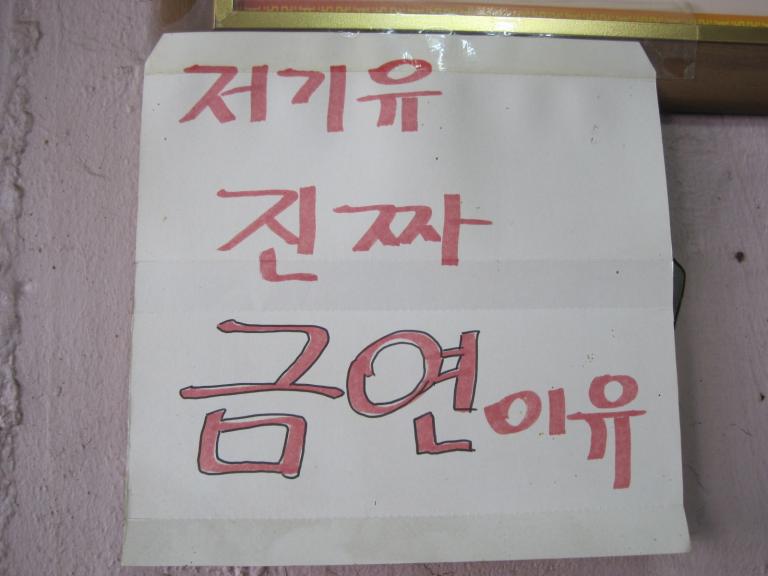 저기유
진짜
금연이유